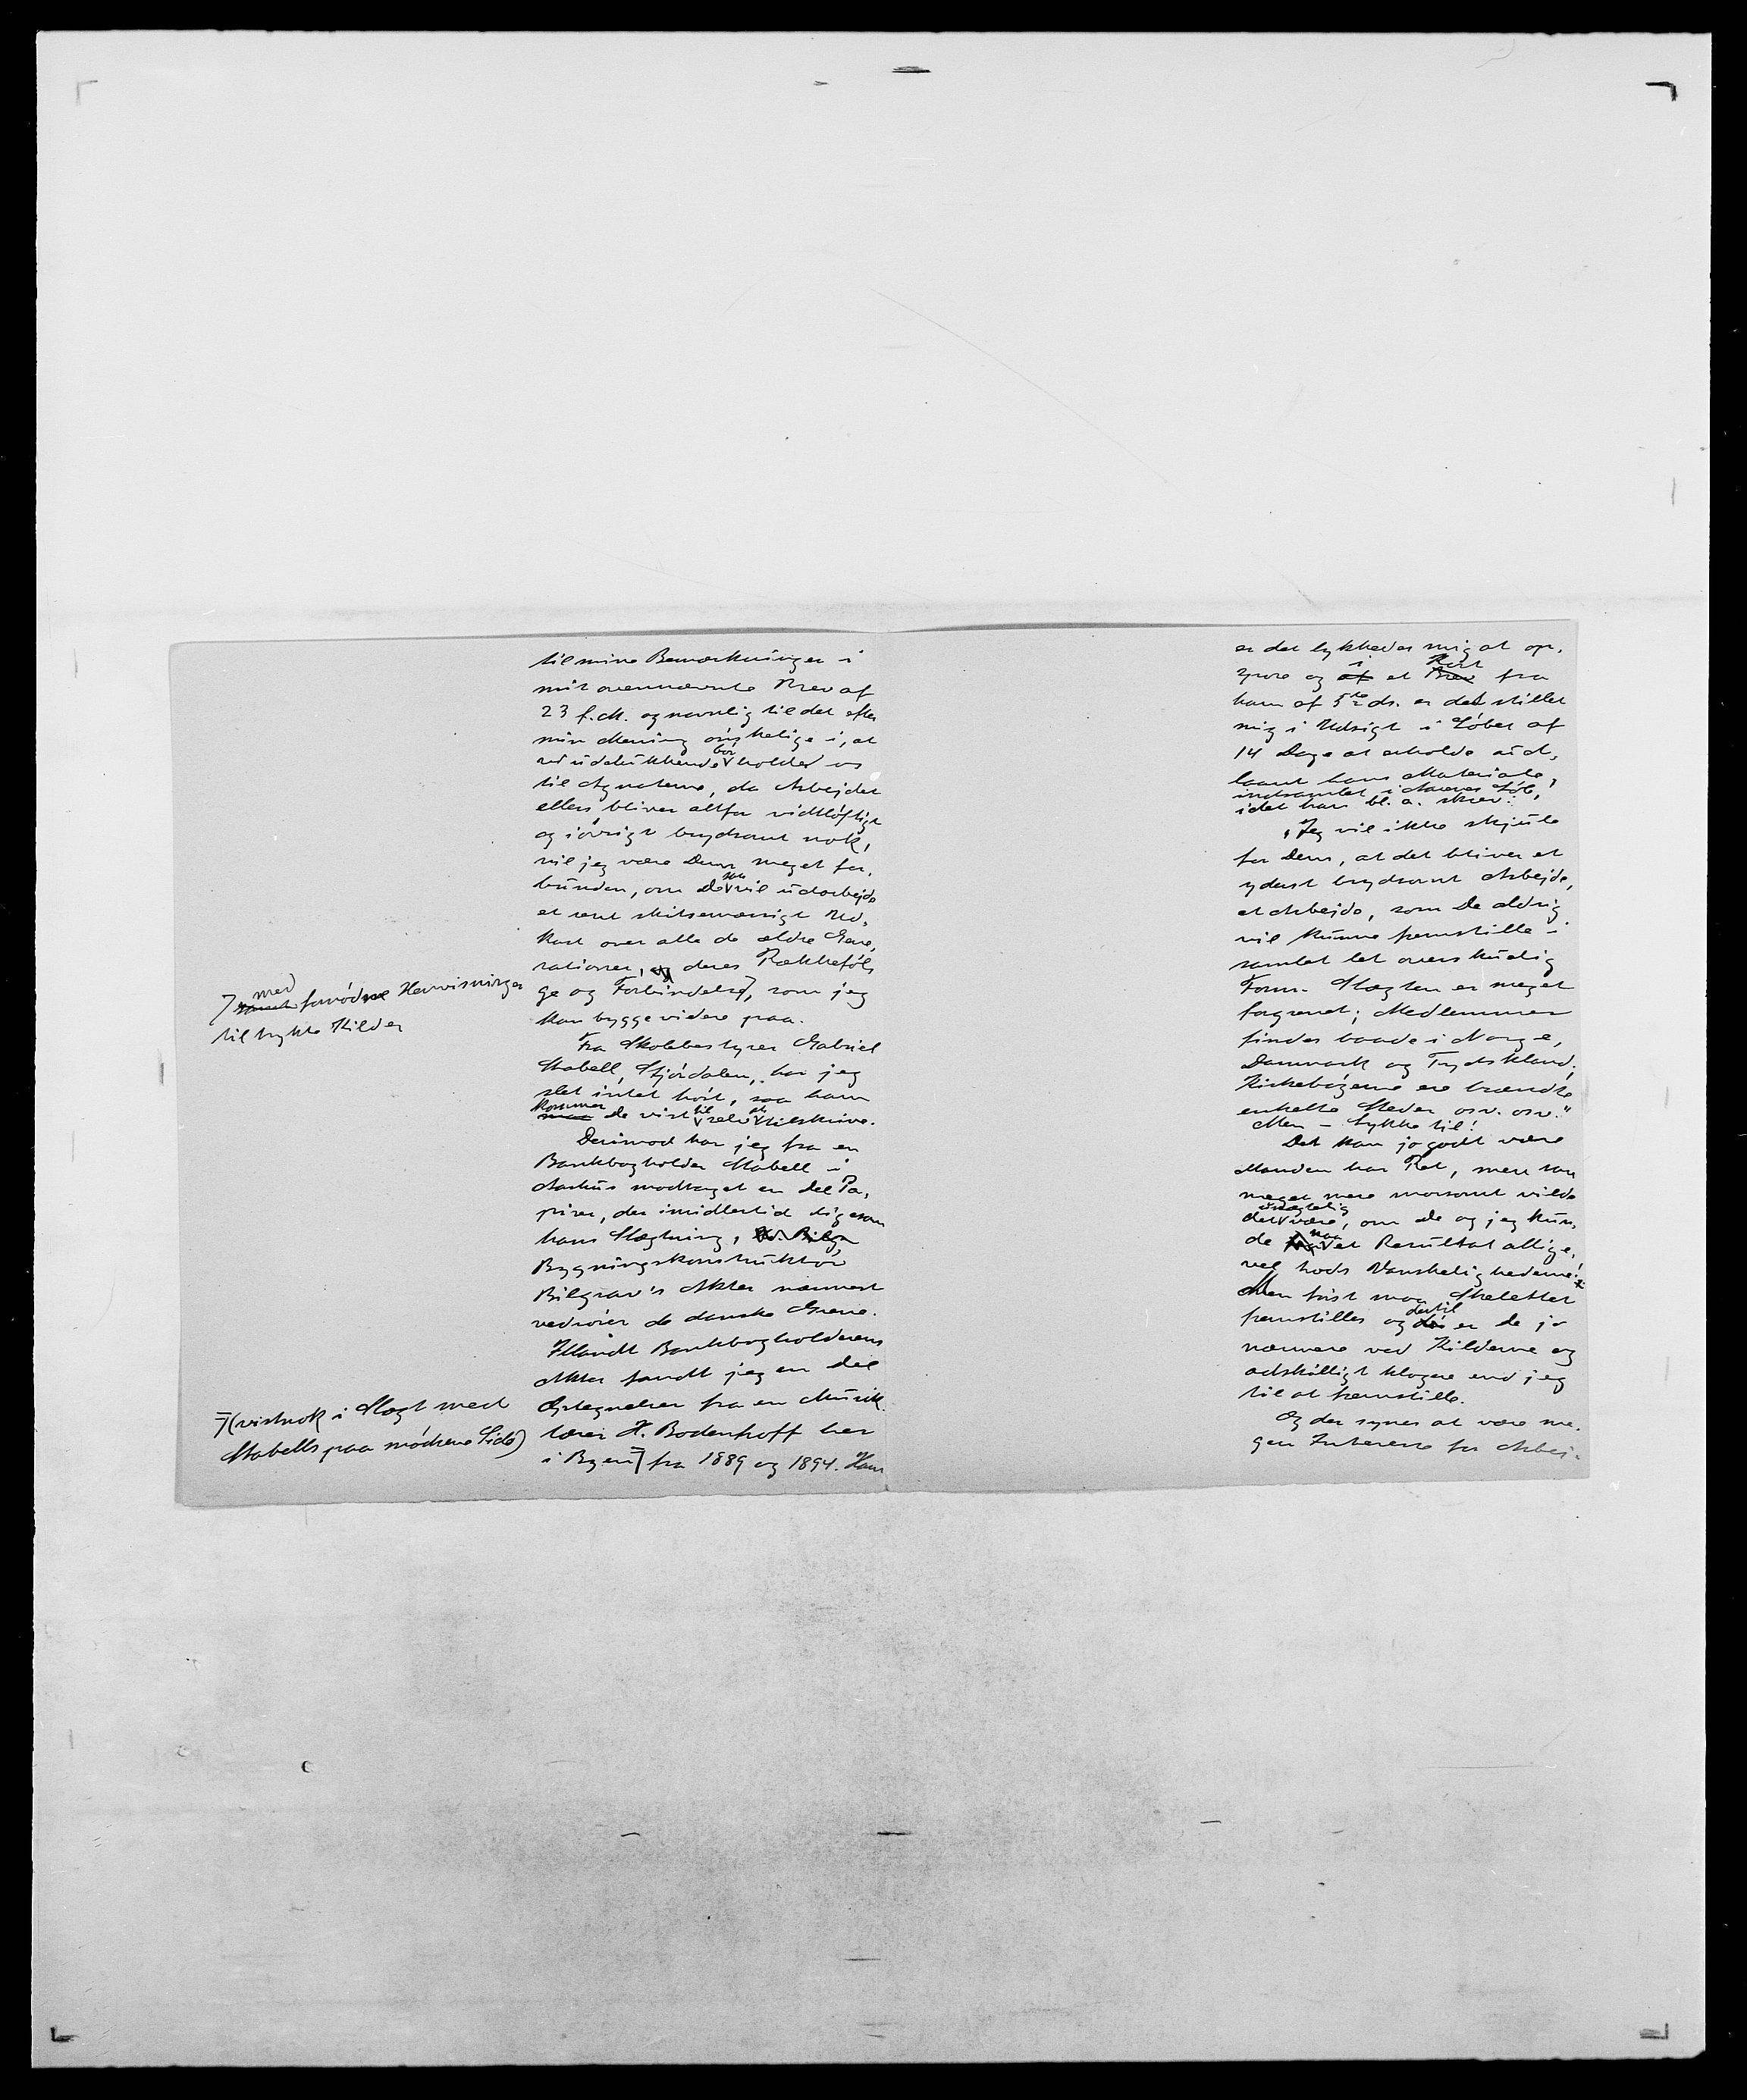 til mine Bemærkninger i
mit ovennævnte Brev af
23 f. M. og navnlig til det efter
min Mening ønskelige i, at
udelukkende bør holder os
til Agnaterne, da Arbejdet
ellers bliver altfor vidtløftigt
og iøvrigt brydsomt nok,
vil jeg være Dem meget for-
bunden, om De vil udarbejde
et rent skitsemæssigt Ud-
kast over alle de ældre Gene-
rationer, deres Rækkeføl-
ge og Forbindelse, som jeg
kan bygge videre paa.
med fornødne Henvisninger
til trykte Kilder
Fra Skolebestyrer Gabriel
Stabell, Stjørdalen, har jeg
slet intet hørt, saa ham
kommer De vist til selv at tilskrive.
Derimod har jeg fra en
Bankbogholder Stabell i
Aarhus modtaget en Del Pa-
pirer, der imidlertid ligesom
hans Slægtning,
Bygningskonstruktør
Bilgrav's Akter nærmest
vedrører de danske Grene.
Iblandt Bankbogholderens
Akter fandt jeg en Del
Optegnelser fra en Musik-
lærer H. Bodenhoff her
i Byen fra 1889 og 1894. Ham
(vistnok i Slægt med
Stabells paa mødrene Side)
er det lykkedes mig at op-
spore og i et Kort fra
ham af 5te ds. er det stillet
mig i Udsigt i Løbet af
14 Dage at erholde ud-
laant hans Materiale,
indsamlet i Aarenes Løb,
idet han bl. a. skrev:
"Jeg vil ikke skjule
for Dem, at det bliver et
yderst brydsomt Arbejde,
et Arbejde, som De aldrig
vil kunne fremstille i
samlet let overskuelig
Form. Slægten er meget
forgrenet; Medlemmer
findes baade i Norge,
Danmark og Tydskland.
Kirkebøgerne ere brændte
enkelte Steder osv. osv."
Men – Lykke til!
Det kan jo godt være
Manden har Ret, men saa
meget mere morsomt vilde
det unægtelig være, om De og jeg kun-
de naa et Resultat allige-
vel trods Vanskelighederne!
Men først maa Skelettet
fremstilles og dertil er De jo
nærmere ved Kilderne og
adskilligt klogere end jeg
til at fremstille.
Og der synes at være me-
gen Interesse for Arbej-